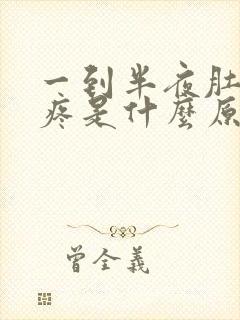 一到半夜肚
疼是什麼原
曾全義